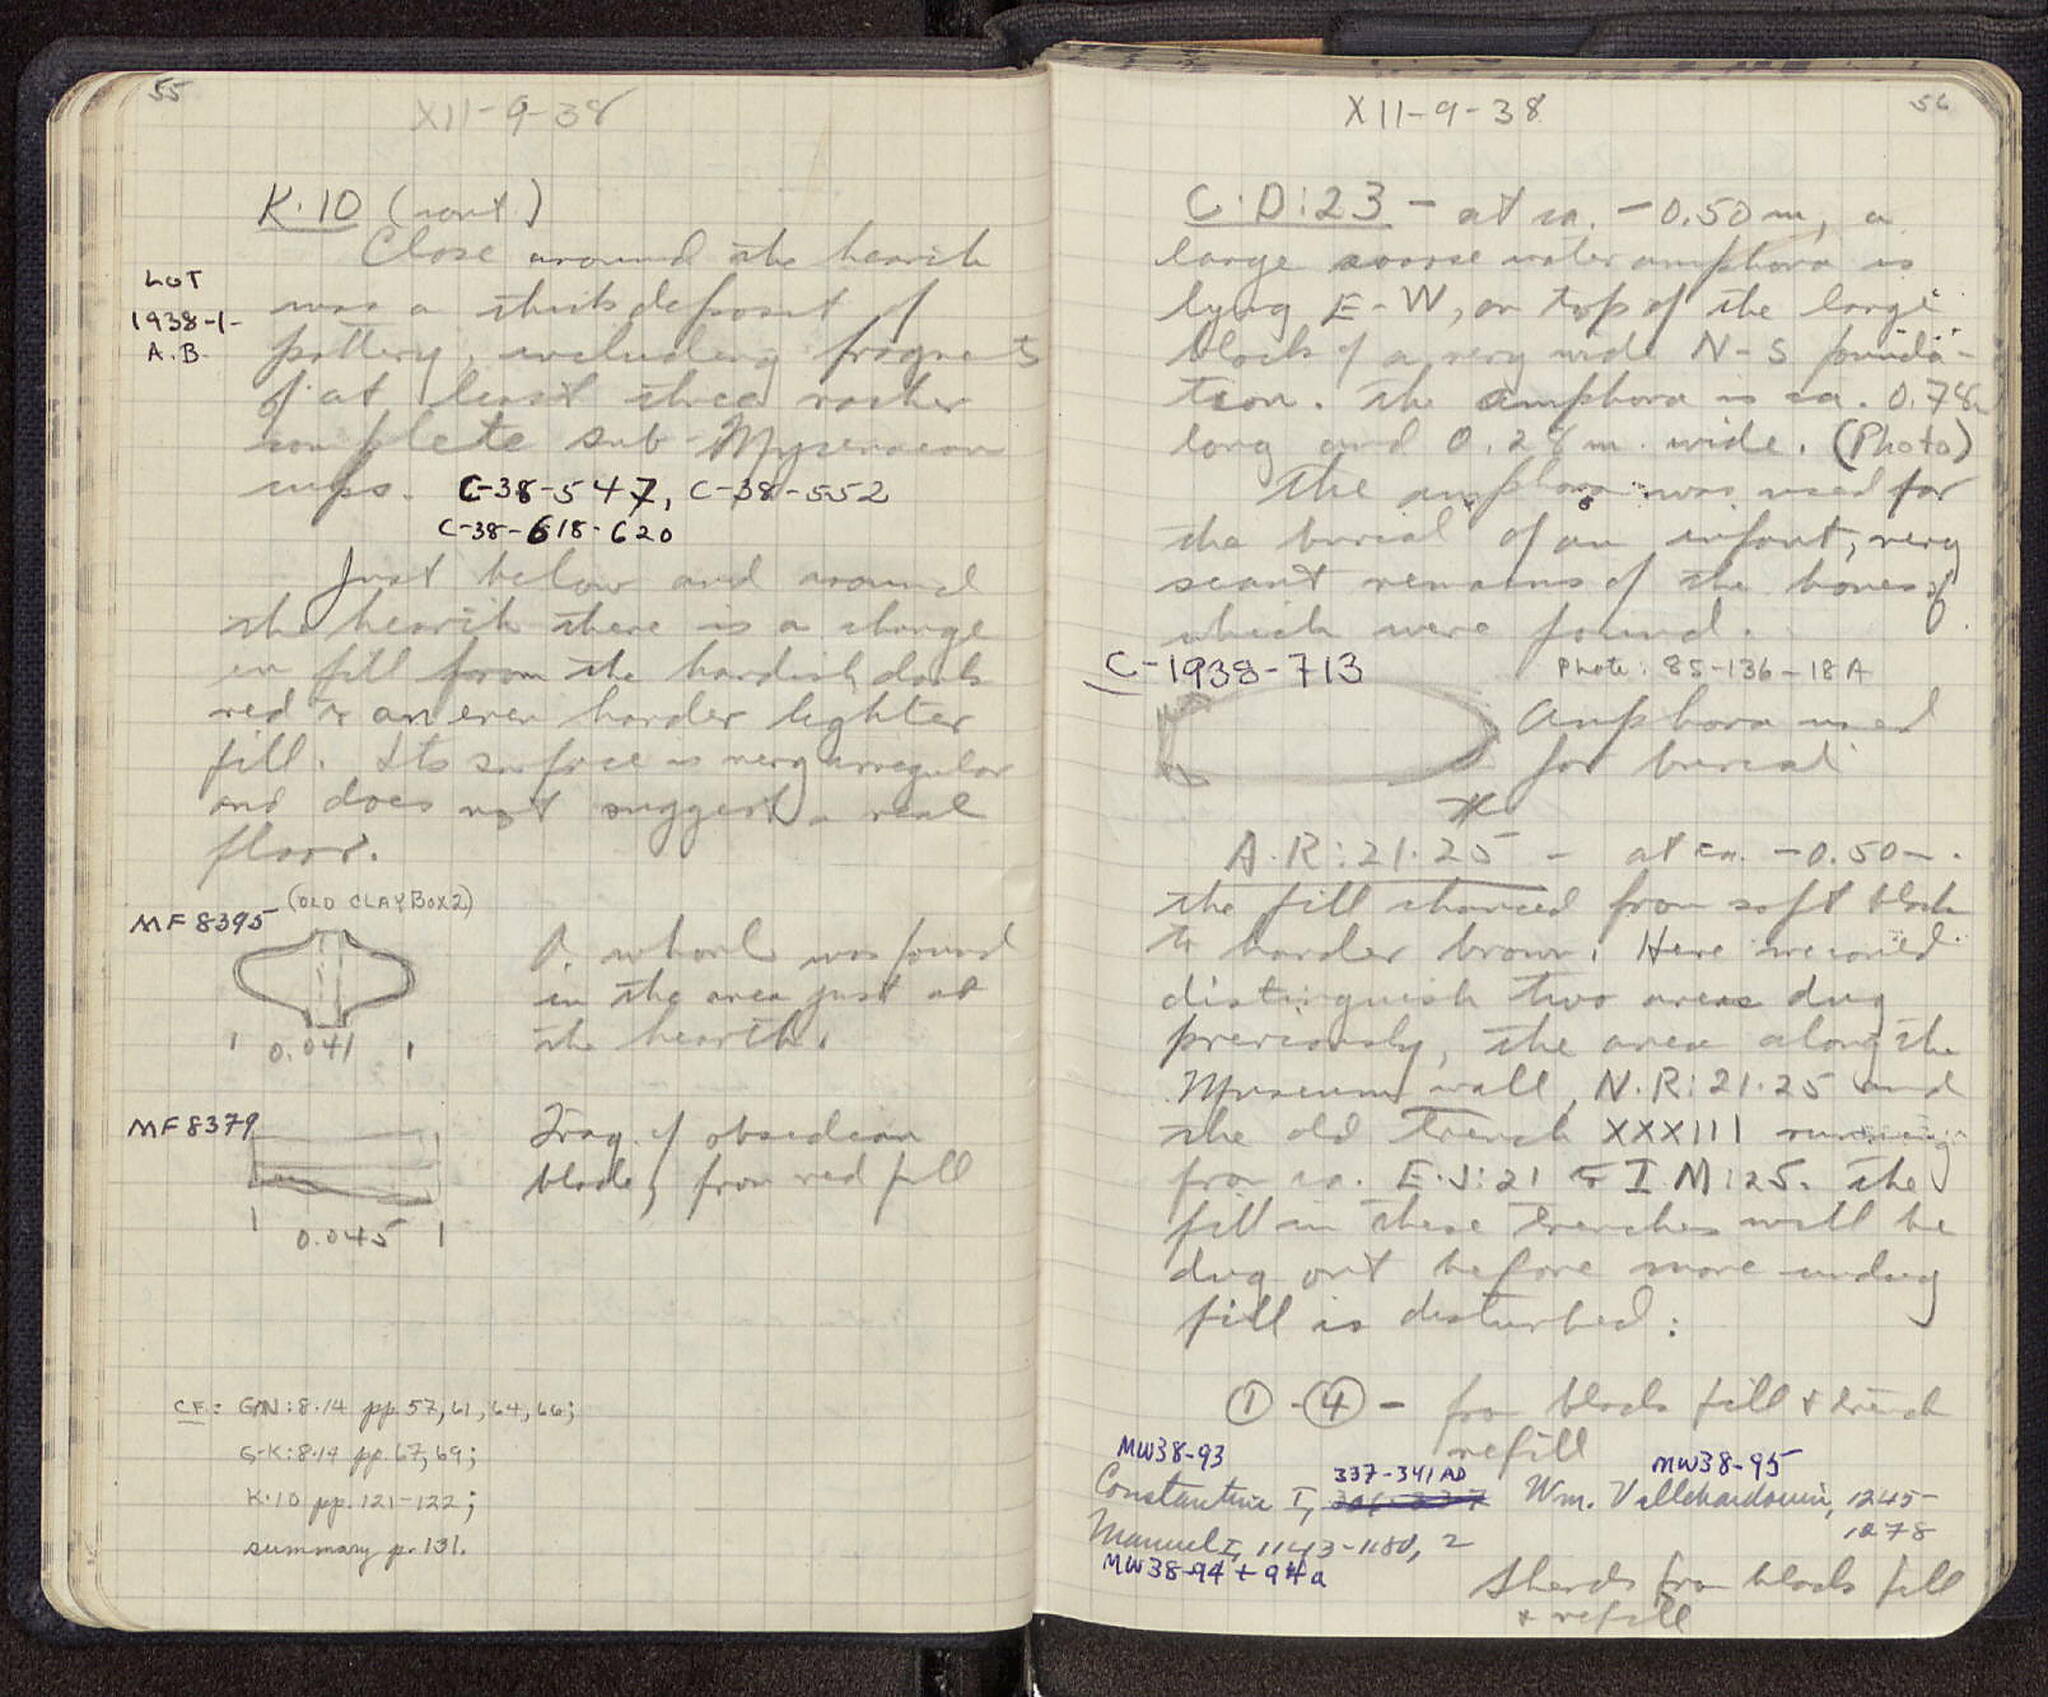 55
XII-9-38
K·10 (cont.)
Close around the hearth
was a thick deposit of
pottery, including fragments
of at least three rather
complete sub-Mycenaean
cups. C-38-547, C-38-552
C-38-618-620
LOT
1938-1-
A.B.
Just below and around
the hearth there is a change
in fill from the hardish dark
red to an even harder lighter
fill. Its surface is very irregular
and does not suggest a real
floor.
(OLD CLAY BOX 2)
MF 8395
A whorl was found
in the area just at
the hearth.
0.041
MF 8379
Frag. of obsidian
blade, from red fill
0.045
CF: G-N:8·14 pp 57, 61, 64, 66;
G-K:8·14 pp. 67, 69;
K·10 pp. 121-122;
summary p. 131.
56
XII-9-38
C·D:23 - at ca. -0.50 m, a
large coarse water amphora is
lying E-W, on top of the large
block of a very wide N-S founda-
tion. The amphora is ca. 0.78m
long and 0.28 m. wide. (Photo)
The amphora was used for
the burial of an infant, very
scant remains of the bones of
which were found.
C-1938-713
Photo: 85-136-18A
Amphora used
for burial
A·R:21·25 - at ca. -0.50-.
the fill changed from soft black
to harder brown. Here we could
distinguish two areas dug
previously, the area along the
Museum wall, N·R:21·25 and
the old Trench XXXIII running
from ca. E·J:21 to I·M:25. The
fill in these trenches will be
dug out before more undug
fill is disturbed:
① - ④ - from black fill & trench
refill
MW38-93
337-341 AD
MW38-95
Constantine I, 306-337 Wm. Villehardouin, 1245-
1278
Manuel I, 1143-1180, 2
MW38-94 + 94a
Sherds from black fill
& refill